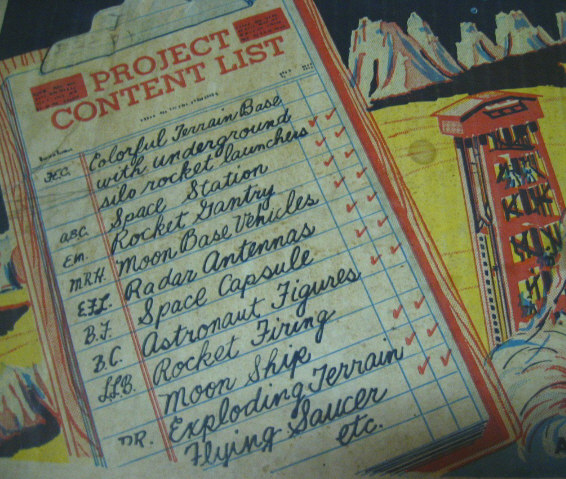 PROJECT
CONTENT LIST
H.C. Colorful Terrain Base
with underground
silo rocket launchers
ABC. Space Station
EM. Rocket Gantry
MRH. Moon Base Vehicles
E.F.L. Radar Antennas
B.F. Space Capsule
B.C. Astronaut Figures
Rocket Firing
Moon Ship
DR. Exploding Terrain
Flying Saucer
etc.